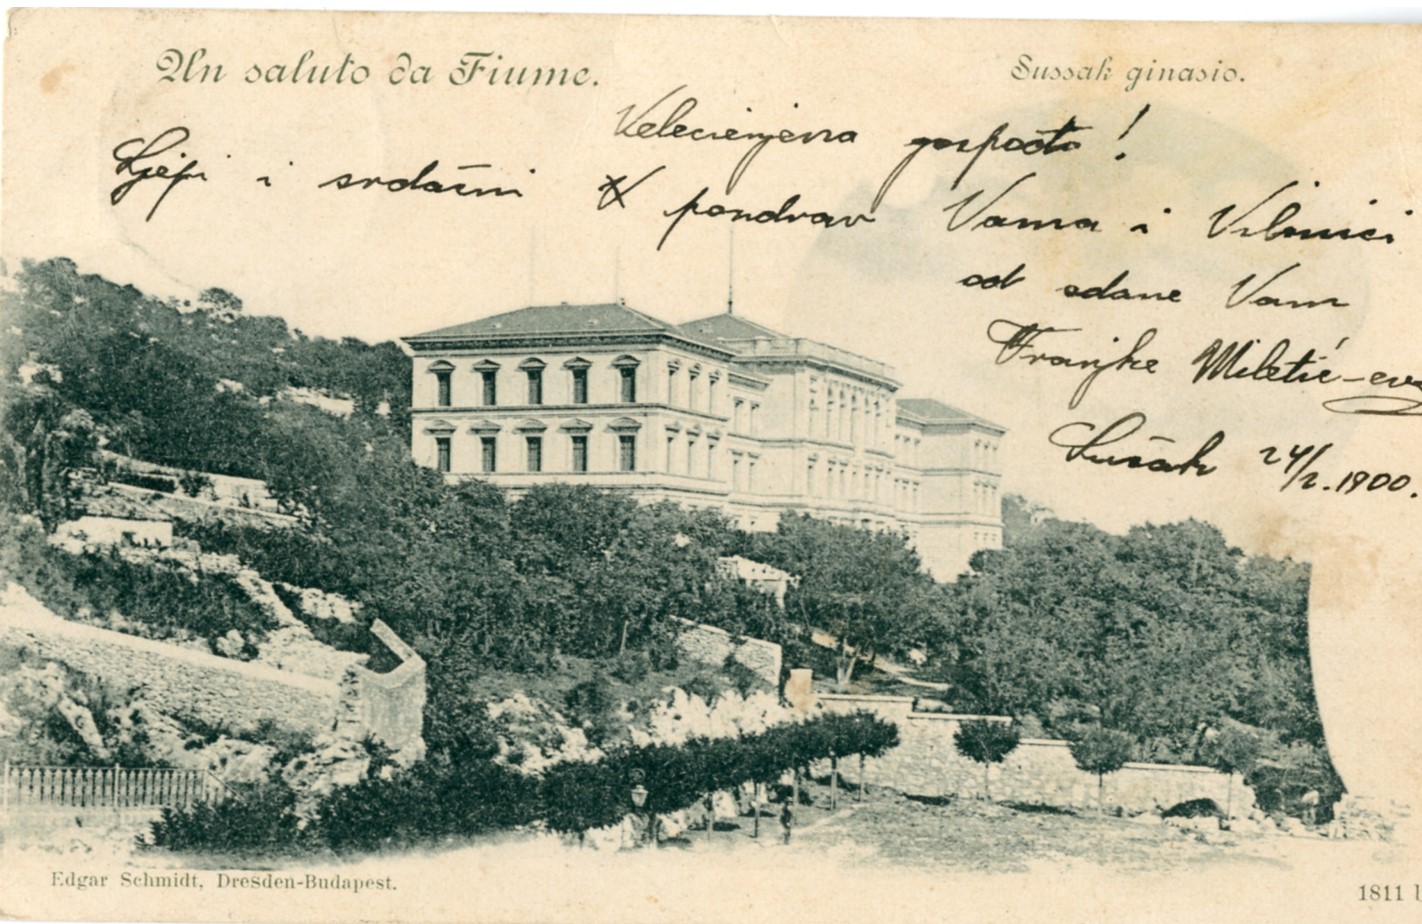 Un saluto da Fiume.
Sussak ginasio.
Velecienjena gospođo!
Ljepi i srdačni pozdrav Vama i Vilmici
od odane Vam
Franjke Miletić-eve
Sušak 24/2.1900.
Edgar Schmidt, Dresden-Budapest.
1811